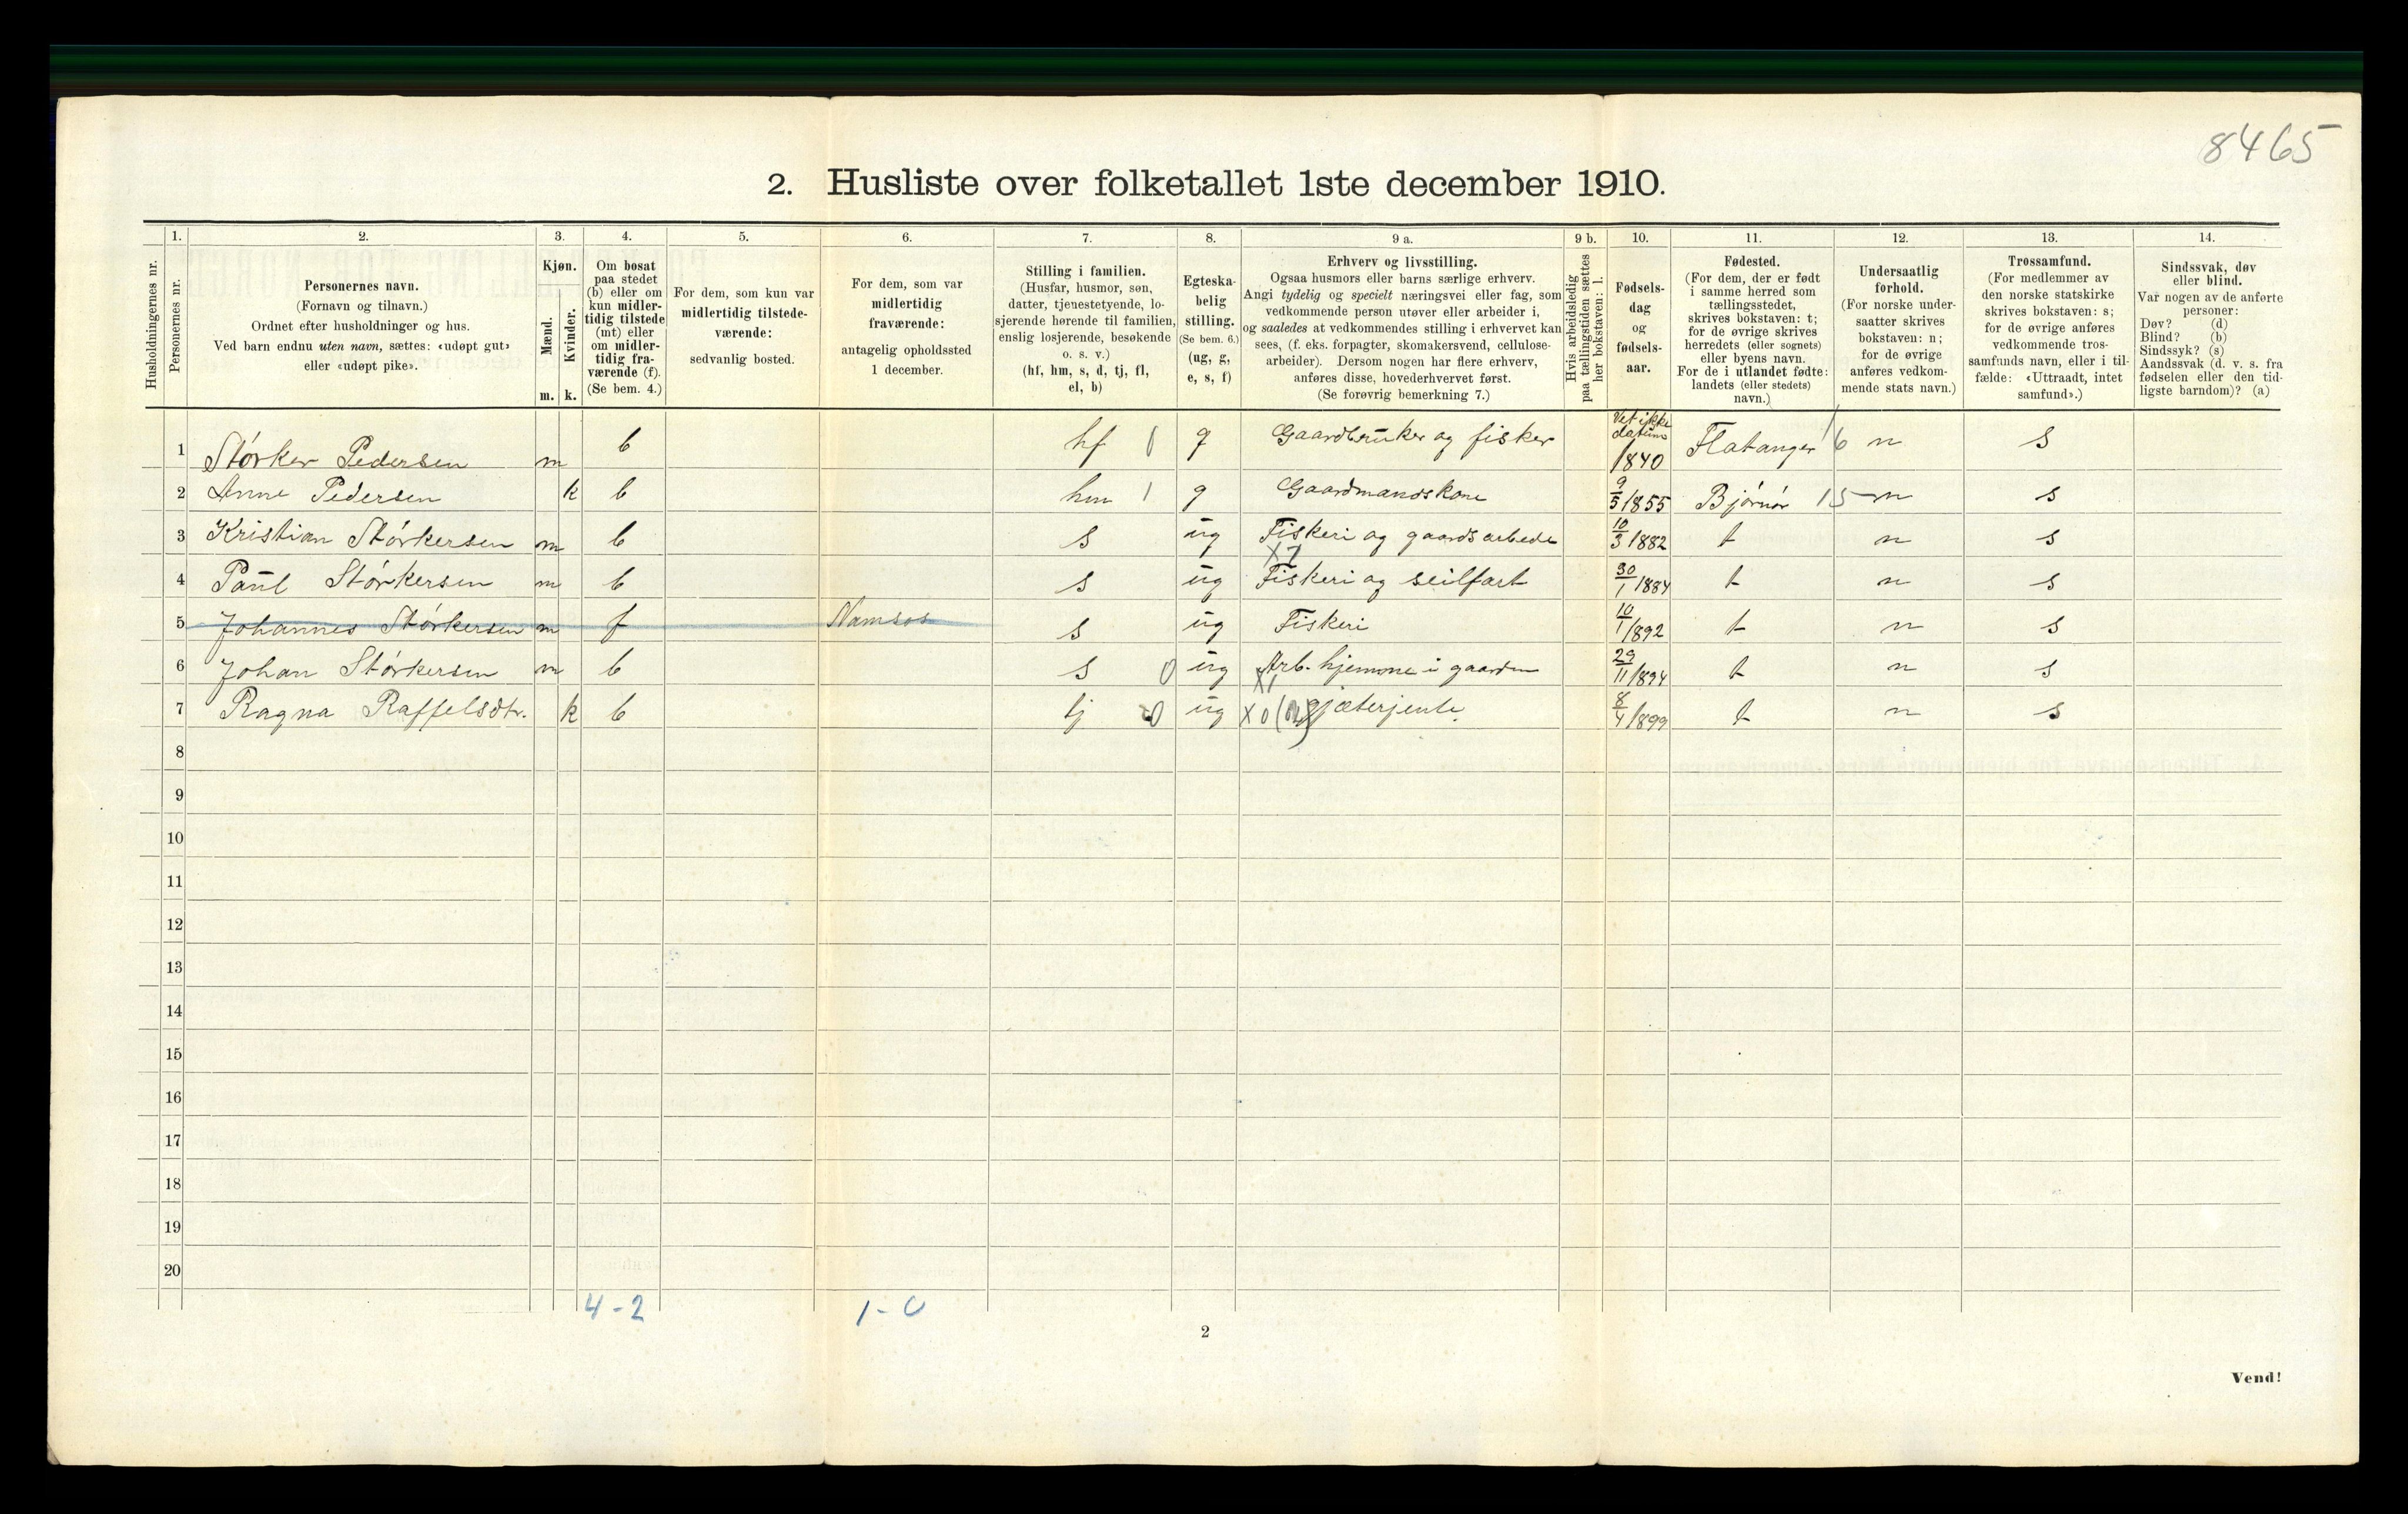 8465
2. Husliste over folketallet 1ste december 1910.
1. 2. 3. 4. 5. 6. 7. 8. 9 a. 9 b. 10. 11. 12. 13. 14.
Husholdningernes nr.
Personernes nr.
Personernes navn.
(Fornavn og tilnavn.)
Ordnet efter husholdninger og hus.
Ved barn endnu uten navn, sættes: «udøpt gut»
eller «udøpt pike».
Kjøn.
Mænd.
Kvinder.
m. k.
Om bosat
paa stedet
(b) eller om
kun midler-
tidig tilstede
(mt) eller
om midler-
tidig fra-
værende (f).
(Se bem. 4.)
For dem, som kun var
midlertidig tilstede-
værende:
sedvanlig bosted.
For dem, som var
midlertidig
fraværende:
antagelig opholdssted
1 december.
Stilling i familien.
(Husfar, husmor, søn,
datter, tjenestetyende, lo-
sjerende hørende til familien,
enslig losjerende, besøkende
o. s. v.)
(hf, hm, s, d, tj, fl,
el, b)
Egteska-
belig
stilling.
(Se bem. 6.)
(ug, g,
e, s, f)
Erhverv og livsstilling.
Ogsaa husmors eller barns særlige erhverv.
Angi tydelig og specielt næringsvei eller fag, som
vedkommende person utøver eller arbeider i,
og saaledes at vedkommendes stilling i erhvervet kan
sees, (f. eks. forpagter, skomakersvend, cellulose-
arbeider). Dersom nogen har flere erhverv,
anføres disse, hovederhvervet først.
(Se forøvrig bemerkning 7.)
Hvis arbeidsledig
paa tællingstiden sættes
her bokstaven: l.
Fødsels-
dag
og
fødsels-
aar.
Fødested.
(For dem, der er født
i samme herred som
tællingsstedet,
skrives bokstaven: t;
for de øvrige skrives
herredets (eller sognets)
eller byens navn.
For de i utlandet fødte:
landets (eller stedets)
navn.)
Undersaatlig
forhold.
(For norske under-
saatter skrives
bokstaven: n;
for de øvrige
anføres vedkom-
mende stats navn.)
Trossamfund.
(For medlemmer av
den norske statskirke
skrives bokstaven: s;
for de øvrige anføres
vedkommende tros-
samfunds navn, eller i til-
fælde: «Uttraadt, intet
samfund».)
Sindssvak, døv
eller blind.
Var nogen av de anførte
personer:
Døv? (d)
Blind? (b)
Sindssyk? (s)
Aandssvak (d. v. s. fra
fødselen eller den tid-
ligste barndom)? (a)
1 Størker Pedersen m b hf g Gaardbruker og fisker Vet ikke datum 1840 Flatanger 16 n s
2 Anne Pedersen k b hm 1 g Gaardmandskone 9/5 1855 Bjørnør 15 n s
3 Kristian Størkersen m b s ug Fiskeri og gaardsarbede 10/3 1882 t n s
4 Paul Størkersen m b s ug X7 Fiskeri og seilfart 30/1 1884 t n s
5 Johannes Størkersen m f Namsos s ug Fiskeri 10/1 1892 t n s
6 Johan Størkersen m b s 0 ug Arb. hjemme i gaarden 29/11 1894 t n s
7 Ragna Raffelsdtr. k b tj 0 ug X0 gjæterjente 8/4 1899 t n s
8
9
10
11
12
13
14
15
16
17
18
19
20
4-2 1-0
2
Vend!